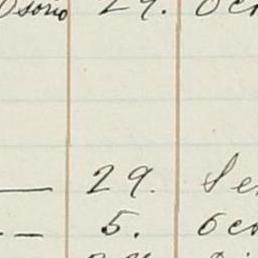 Osorio 29. Oc
— 29. Se
— 5. Oc